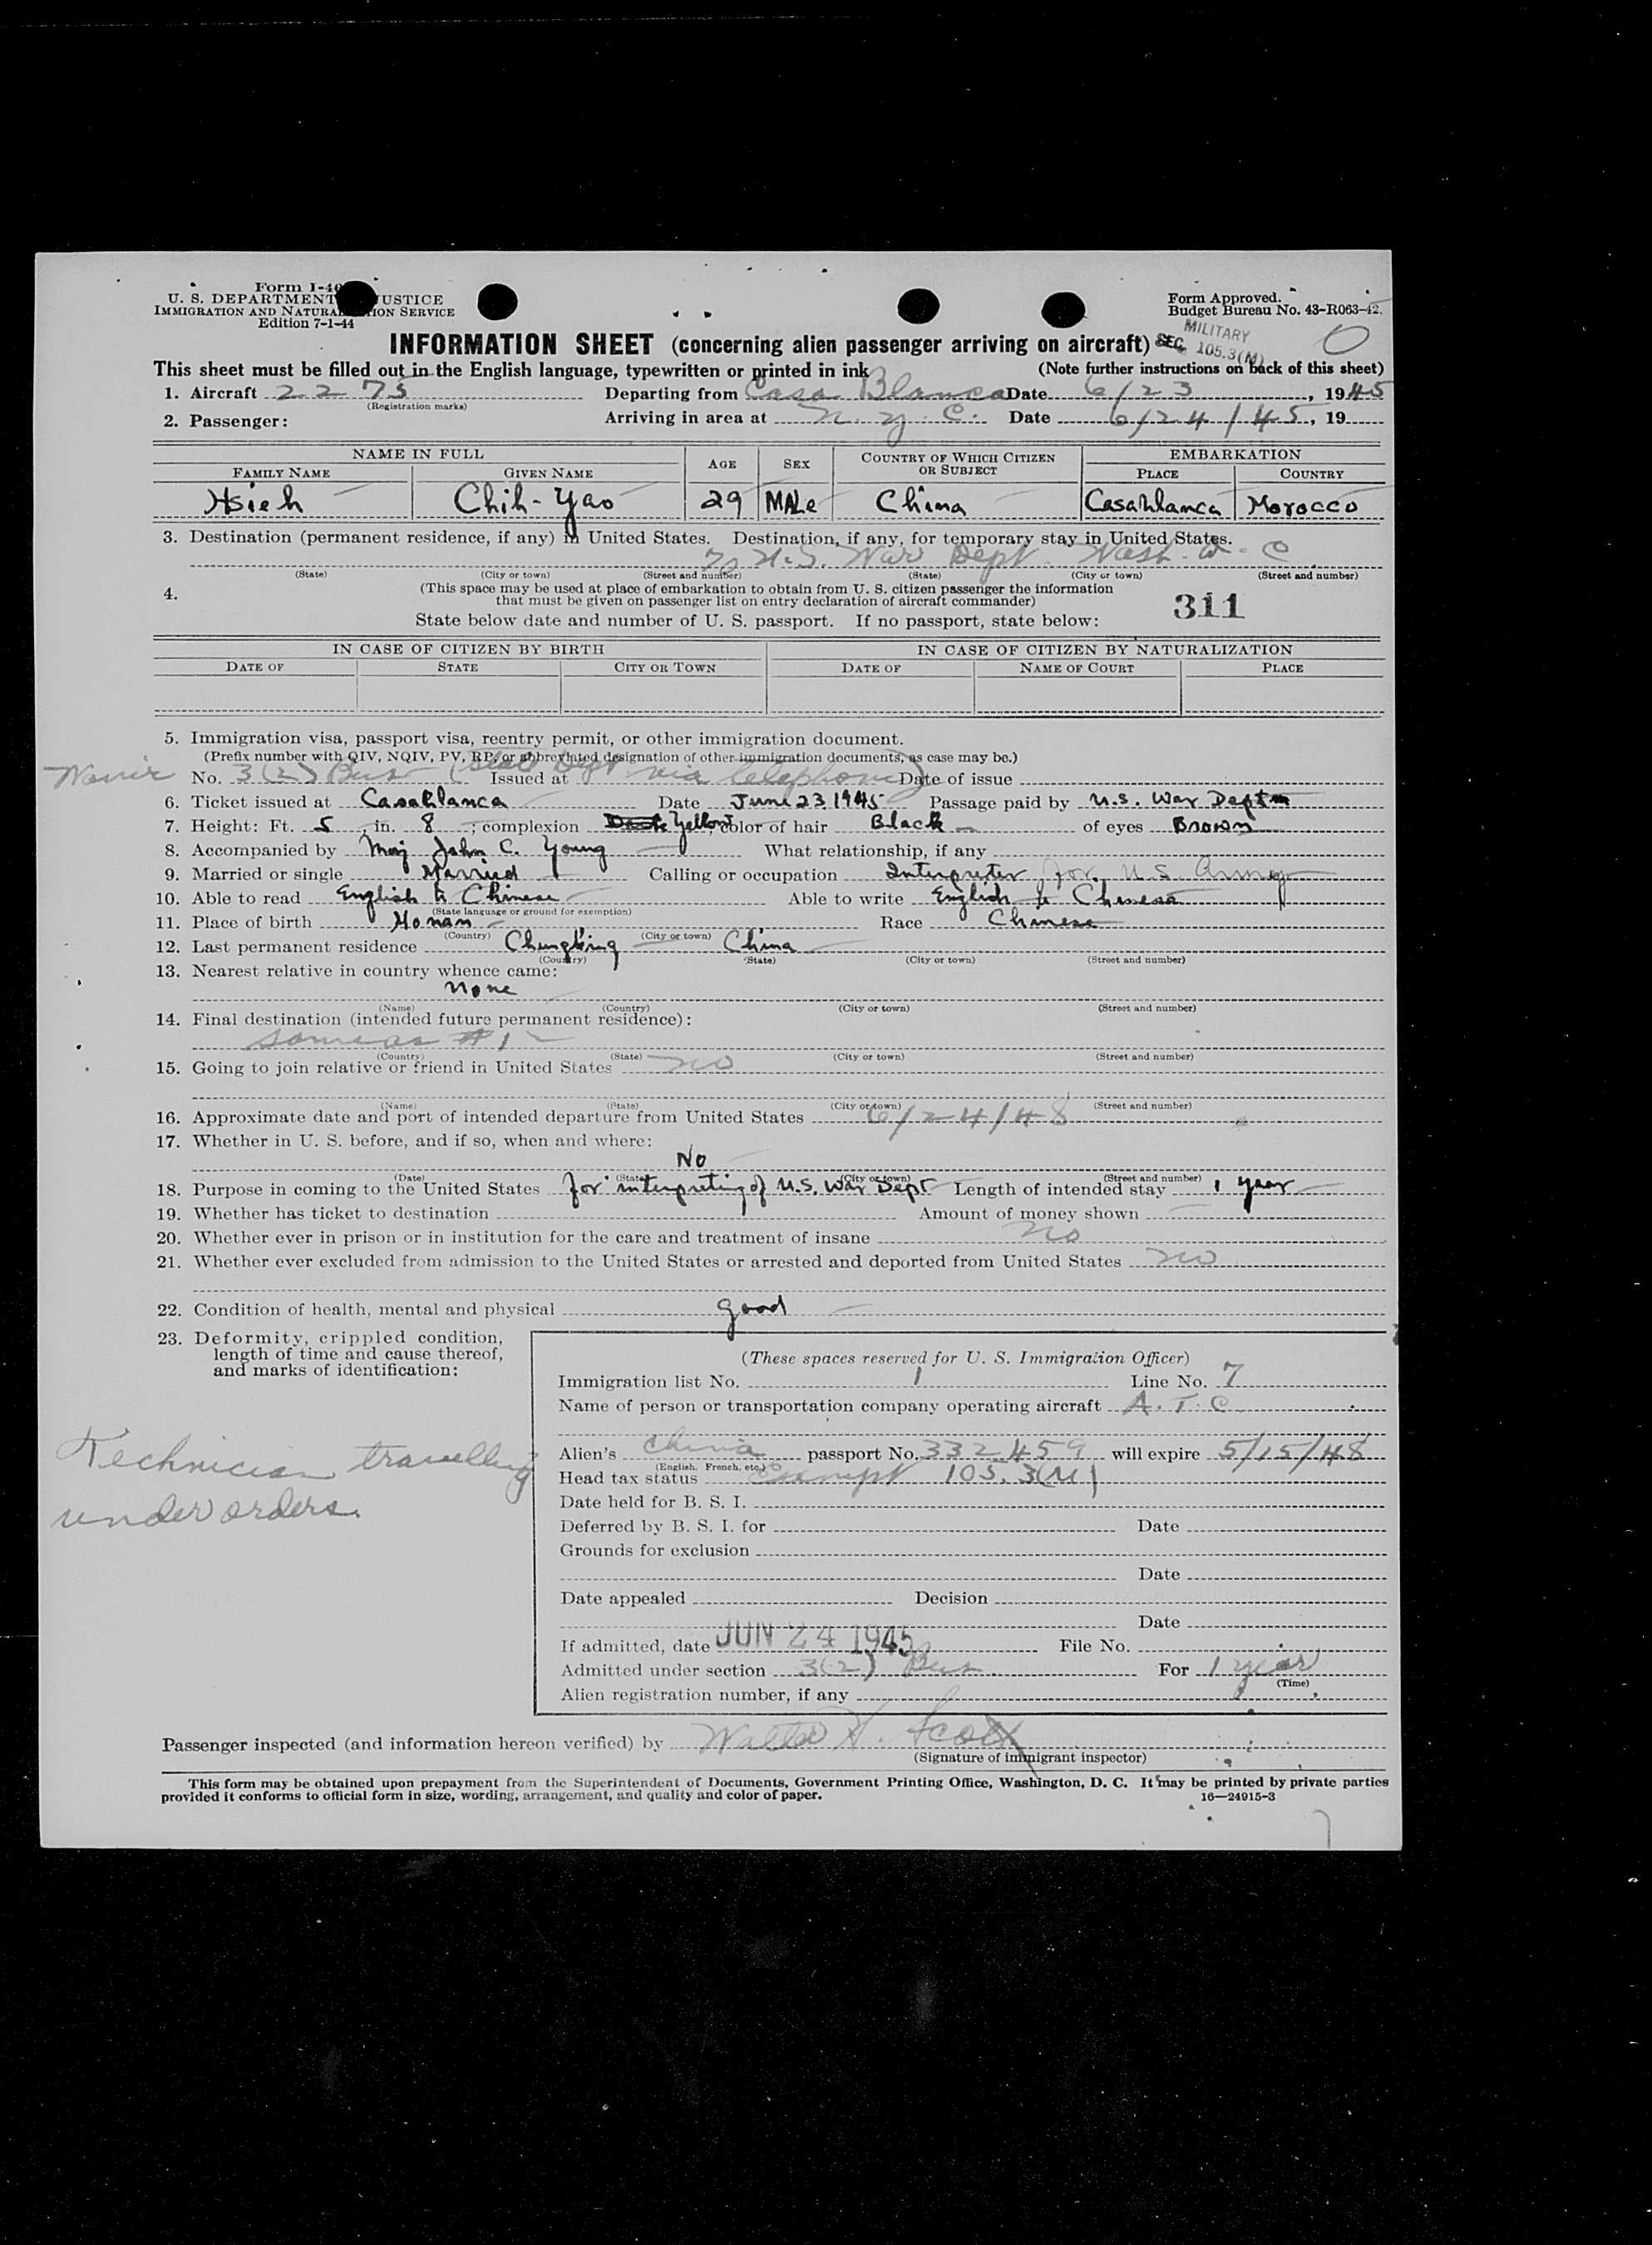 Form I-4
U. S. DEPARTMENT JUSTICE
IMMIGRATION AND NATURALIZATION SERVICE
Edition 7-1-44
Form Approved.
Budget Bureau No. 43-R063-42.
MILITARY
SEC. 105.3(M)
0
INFORMATION SHEET (concerning alien passenger arriving on aircraft)
This sheet must be filled out in the English language, typewritten or printed in ink (Note further instructions on back of this sheet)
1. Aircraft 2275 Departing from Casa Blanca Date 6/23, 1945
(Registration marks)
2. Passenger: Arriving in area at N.Y.C. Date 6/24/45, 19
NAME IN FULL AGE SEX COUNTRY OF WHICH CITIZEN OR SUBJECT EMBARKATION
FAMILY NAME GIVEN NAME PLACE COUNTRY
Hsieh Chih-Yao 29 MALe China Casablanca Morocco
3. Destination (permanent residence, if any) in United States. Destination, if any, for temporary stay in United States.
% U.S. War Dept. Wash. D.C.
(State) (City or town) (Street and number) (State) (City or town) (Street and number)
4. (This space may be used at place of embarkation to obtain from U. S. citizen passenger the information
that must be given on passenger list on entry declaration of aircraft commander)
311
State below date and number of U. S. passport. If no passport, state below:
IN CASE OF CITIZEN BY BIRTH IN CASE OF CITIZEN BY NATURALIZATION
DATE OF STATE CITY OR TOWN DATE OF NAME OF COURT PLACE
5. Immigration visa, passport visa, reentry permit, or other immigration document.
(Prefix number with QIV, NQIV, PV, RP, or abbreviated designation of other immigration documents, as case may be.)
No. 3(2) Bus (State Dept via telephone) Issued at Date of issue
6. Ticket issued at Casablanca Date June 23 1945 Passage paid by U.S. War Dept
7. Height: Ft. 5, in. 8; complexion Dark Yellow color of hair Black of eyes Brown
8. Accompanied by Maj John C. Young What relationship, if any
9. Married or single Married Calling or occupation Interpreter for U.S. Army
10. Able to read English & Chinese Able to write English & Chinese
(State language or ground for exemption)
11. Place of birth Honan Race Chinese
(Country) (City or town)
12. Last permanent residence Chungking China
(Country) (State) (City or town) (Street and number)
13. Nearest relative in country whence came:
None
(Name) (Country) (City or town) (Street and number)
14. Final destination (intended future permanent residence):
same as #1
(Country) (State) (City or town) (Street and number)
15. Going to join relative or friend in United States no
(Name) (State) (City or town) (Street and number)
16. Approximate date and port of intended departure from United States 6/24/48
17. Whether in U. S. before, and if so, when and where:
No
(Date) (State) (City or town) (Street and number)
18. Purpose in coming to the United States for interpreting of U.S. War Dept Length of intended stay 1 year
19. Whether has ticket to destination Amount of money shown
20. Whether ever in prison or in institution for the care and treatment of insane no
21. Whether ever excluded from admission to the United States or arrested and deported from United States no
22. Condition of health, mental and physical good
23. Deformity, crippled condition,
length of time and cause thereof,
and marks of identification:
Technician travelling
under orders.
(These spaces reserved for U. S. Immigration Officer)
Immigration list No. 1 Line No. 7
Name of person or transportation company operating aircraft A.T.C.
Alien's China passport No. 332459 will expire 5/15/48
(English, French, etc.)
Head tax status Exempt 105.3(M)
Date held for B. S. I.
Deferred by B. S. I. for Date
Grounds for exclusion
Date
Date appealed Decision
Date
If admitted, date JUN 24 1945 File No.
Admitted under section 3(2) Bus. For 1 year
(Time)
Alien registration number, if any
Passenger inspected (and information hereon verified) by Walter H. Scott
(Signature of immigrant inspector)
This form may be obtained upon prepayment from the Superintendent of Documents, Government Printing Office, Washington, D. C. It may be printed by private parties
provided it conforms to official form in size, wording, arrangement, and quality and color of paper. 16—24915-3
7